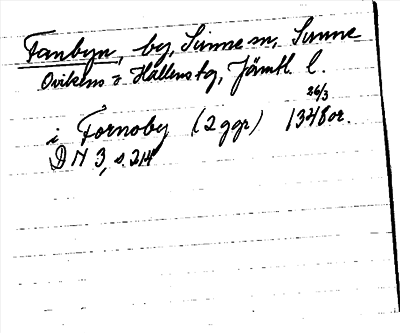 Fanbyn, by, Sunne sn, Sunne
Ovikens o Hallens tg, Jämtl. l.
26/3
i Fornoby (2 ggr) 1348 or.
DN 3, s. 214